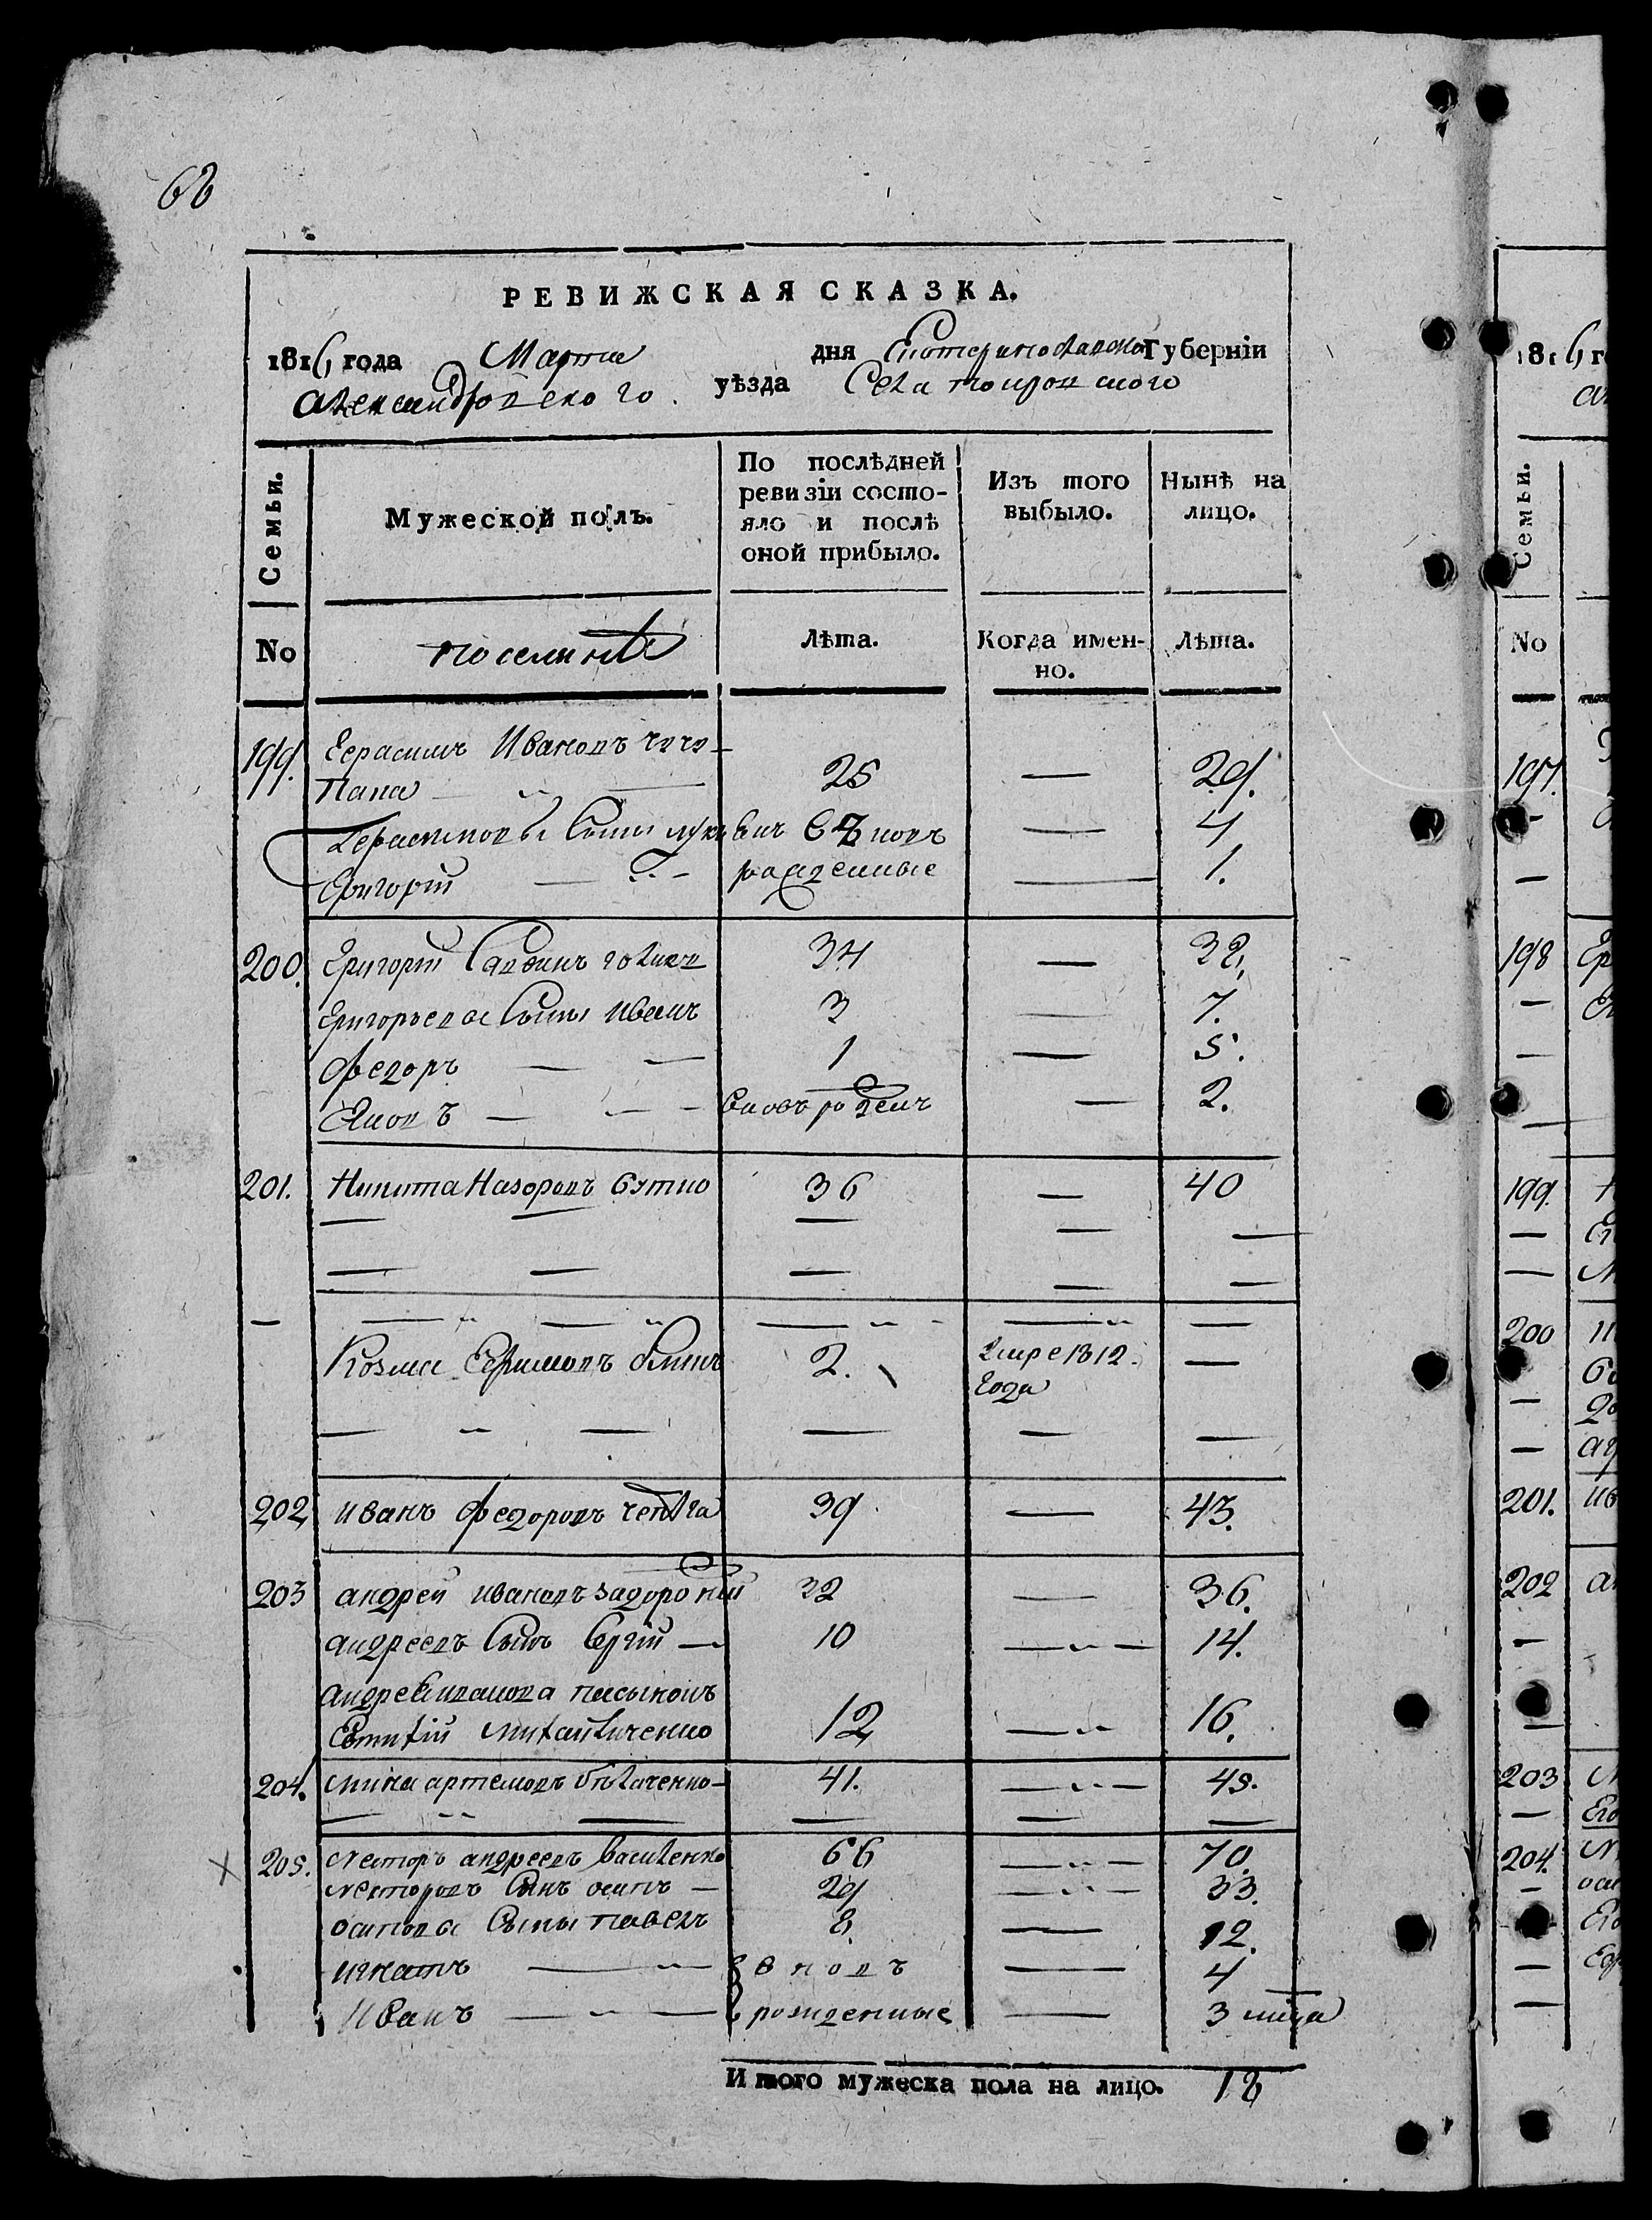 68
РЕВИЖСКАЯ СКАЗКА.
1816 года Марта дня Екатеринославской Губерніи
Александровского уѣзда Села Покровского
Семьи. Мужеской полъ. По послѣдней ревизіи состояло и послѣ оной прибыло. Изъ того выбыло. Нынѣ на лицо.
No поселянѣ Лѣта. Когда именно. Лѣта.
199. Герасимъ Ивановъ
25 — 29.
Герасимовы Сыны вновь — 4
Григорій рожденные — 1.
200. Григорій Саввинъ 34 — 38.
Григорьевы Сыны Иванъ 3 — 7.
Федоръ — — 1 — 5.
Яковъ — — вновь рожденъ — 2.
201. Никита Назоровъ Бутко 36 — 40
Козма Ефимовъ Сынъ 2. умре 1812. —
Года
202 Иванъ Федоровъ 39 — 43.
203 андрей Ивановъ задорожній 32 — 36.
андреевъ Сынъ Сергій — 10 — 14.
андрея Иванова пасынокъ
Евтифій Михайличенко 12 — 16.
204. Мина артемовъ Бѣличенко 41. — 45.
205. Несторъ андреевъ Василенко 66 — 70.
Несторовъ Сынъ осипъ — 29 — 33.
осиповы Сыны павелъ 8 — 12.
игнатъ — вновъ — 4
Иванъ — рожденные — 3
Итого мужеска пола на лицо. 18
1816 го
Семьи.
No
197.
198
199.
200
201.
202
203
204.